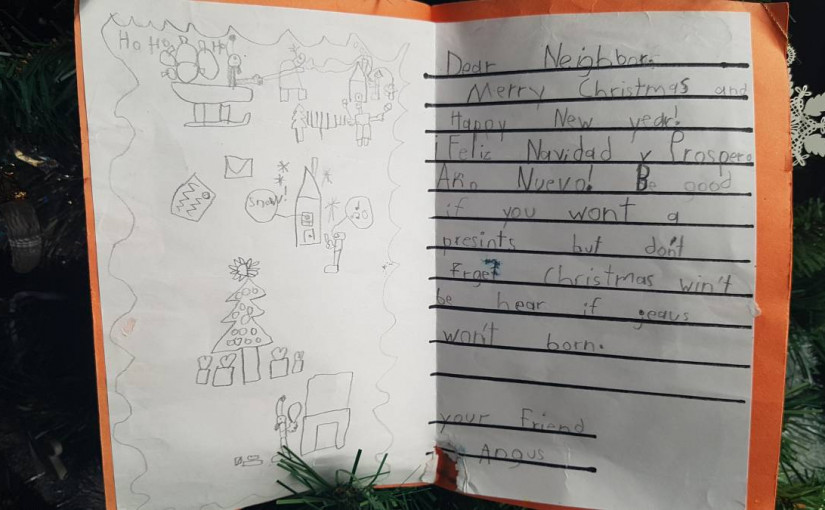 Ho Ho Ho
snow!
Dear Neighbor:
Merry Christmas and
Happy New year!
¡Feliz Navidad y Prospero
Ano Nuevo! Be good
if you wont a
presints but don't
Frget Christmas win't
be hear if jeaus
won't born.
your Friend
Angus